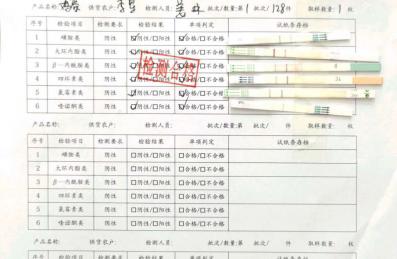 产品名称: 供货农户: 检测人员: 批次/数量:第1批次/128件 取样数量 1 枚
序号 检验项目 检测要求 检验结果 单项判定 试纸条存档
1 磺胺类 阴性 ☑阴性/□阳性 ☑合格/□不合格
2 大环内酯类 阴性 ☑阴性/□阳性 ☑合格/□不合格
3 β—内酰胺类 阴性 ☑阴性/□阳性 ☑合格/□不合格
4 四环素类 阴性 ☑阴性/□阳性 ☑合格/□不合格
5 氯霉素类 阴性 ☑阴性/□阳性 ☑合格/□不合格
6 喹诺酮类 阴性 ☑阴性/□阳性 ☑合格/□不合格
检测合格
产品名称: 供货农户: 检测人员: 批次/数量:第 批次/ 件 取样数量 枚
序号 检验项目 检测要求 检验结果 单项判定 试纸条存档
1 磺胺类 阴性 □阴性/□阳性 □合格/□不合格
2 大环内酯类 阴性 □阴性/□阳性 □合格/□不合格
3 β—内酰胺类 阴性 □阴性/□阳性 □合格/□不合格
4 四环素类 阴性 □阴性/□阳性 □合格/□不合格
5 氯霉素类 阴性 □阴性/□阳性 □合格/□不合格
6 喹诺酮类 阴性 □阴性/□阳性 □合格/□不合格
产品名称: 供货农户: 检测人员: 批次/数量:第 批次/ 件 取样数量 枚
序号 检验项目 检测要求 检验结果 单项判定 试纸条存档